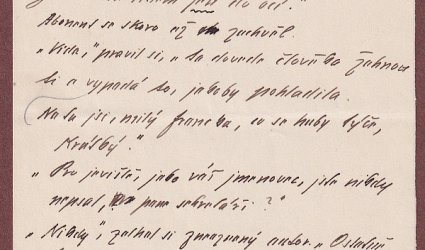 do očí."
Abonent se skoro až zachvěl.
„Vida," pravil si, „ta dovede člověka žehnout
si a vypadá to, jakoby pohladila.
Na to jsi, milý Francka, co se huby týče,
krátký."
„Pro jeviště, jako váš jmenovec, jste nikdy
nepsal, pane sekretáři?"
„Nikdy", zalhal si zmrazený autor. „Ostatně